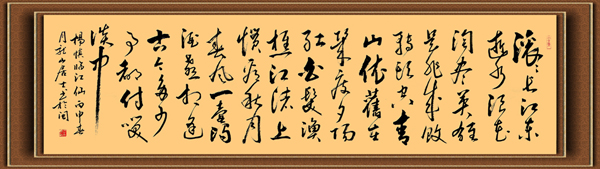 滚々长江东
逝水浪花
淘尽英雄
是非成败
转头空青
山依旧在
几度夕阳
红白发渔
樵江渚上
惯看秋月
春风一壶浊
酒喜相逢
古今多少
事都付笑
谈中
杨慎临江仙丙申春
月 山居士 於闽